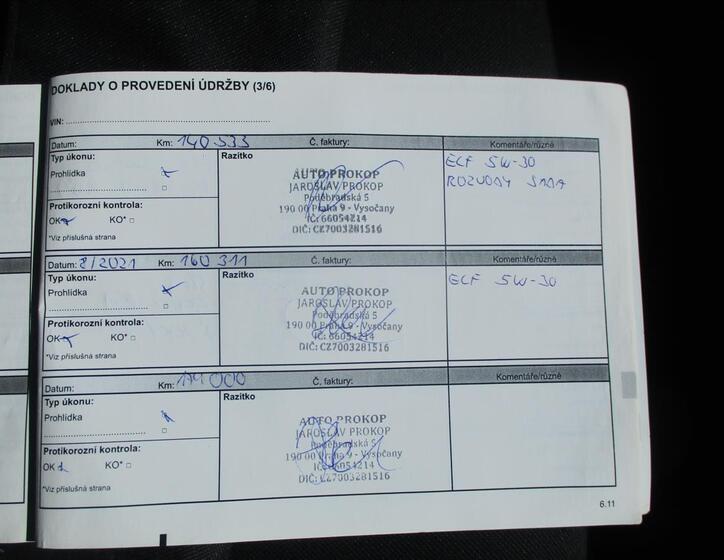 DOKLADY O PROVEDENÍ ÚDRŽBY (3/6)
VIN:
Datum: Km: 140 533 Č. faktury: Komentáře/různé
Typ úkonu: Razítko
Prohlídka
Protikorozní kontrola:
OK KO* □
*Viz příslušná strana
AUTO PROKOP
JAROSLAV PROKOP
Poděbradská 5
190 00 Praha 9 - Vysočany
IČ: 66054214
DIČ: CZ7003281516
ELF 5W-30
ROZVODY
Datum: 8/2021 Km: 160 311 Č. faktury: Komentáře/různé
Typ úkonu: Razítko
Prohlídka
Protikorozní kontrola:
OK KO* □
*Viz příslušná strana
AUTO PROKOP
JAROSLAV PROKOP
Poděbradská 5
190 00 Praha 9 - Vysočany
IČ: 66054214
DIČ: CZ7003281516
ELF 5W-30
Datum: Km: Č. faktury: Komentáře/různé
Typ úkonu: Razítko
Prohlídka
Protikorozní kontrola:
OK KO* □
*Viz příslušná strana
AUTO PROKOP
JAROSLAV PROKOP
Poděbradská 5
190 00 Praha 9 - Vysočany
IČ: 66054214
DIČ: CZ7003281516
6.11